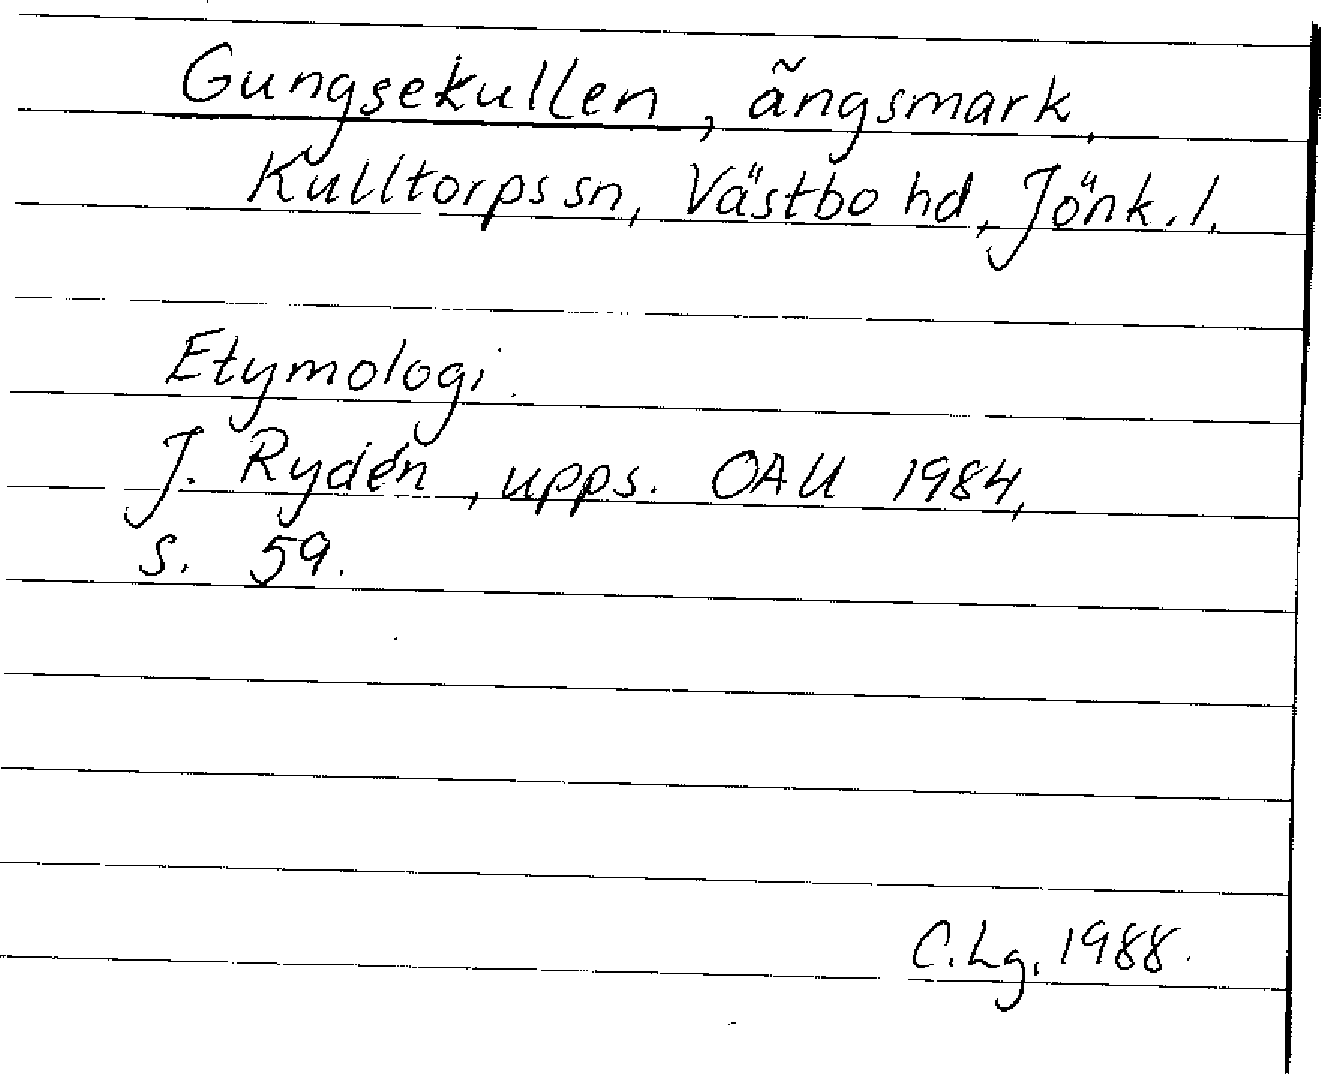 Gungsekullen, ängsmark,
Kulltorps sn, Västbo hd, Jönk. l.
Etymologi.
J. Rydén, upps. OAU 1984,
s. 59.
C. Lg, 1988.